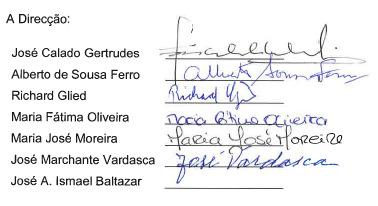 A Direcção:
José Calado Gertrudes
Alberto de Sousa Ferro Alberto Sousa Ferro
Richard Glied Richard
Maria Fátima Oliveira Maria Fátima Oliveira
Maria José Moreira Maria José Moreira
José Marchante Vardasca José Vardasca
José A. Ismael Baltazar